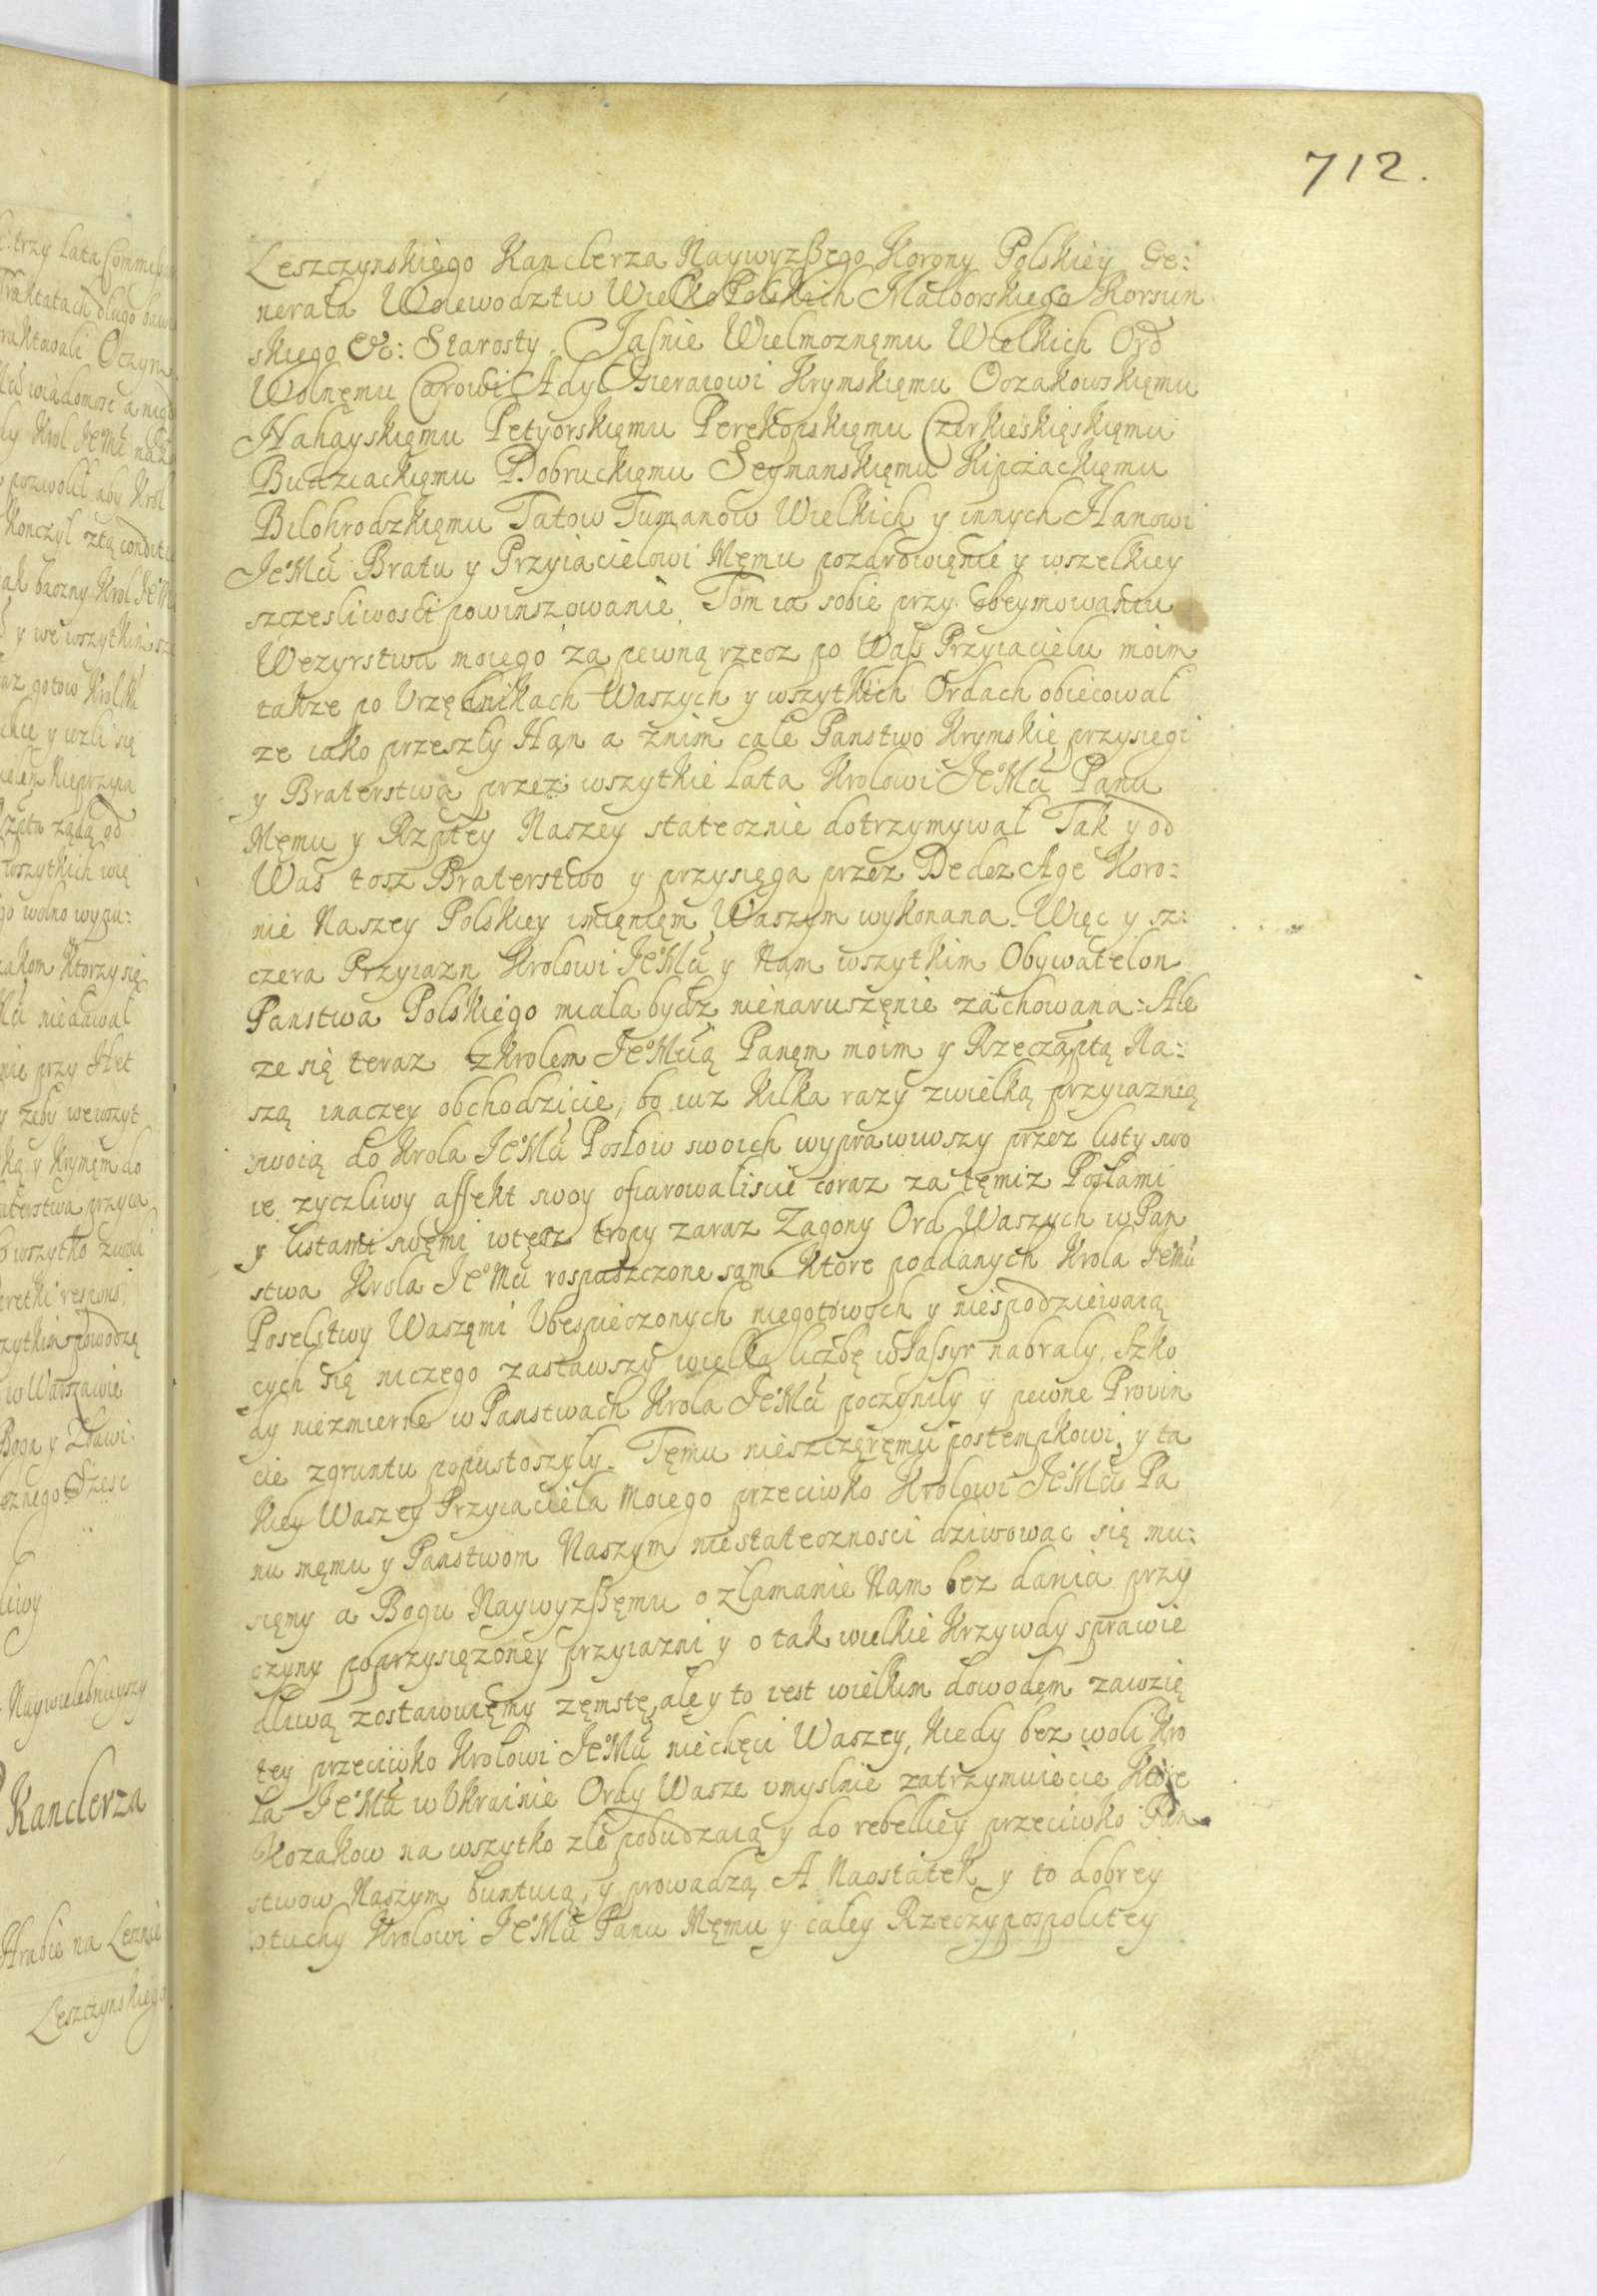 712.
Leszczynskiego Kanclerza Naywyzßego Korony Polskiey Ge:
nerała Woiewodztw WielkoPolskich Malborskiego Korsun
skiego &c: Starosty. Jaſnie Wielmoznęmu Wielkich Ord
Wolnęmu Carowi Adyl Gieraiowi Krymskięmu Oczakowskięmu
Nahayskięmu Petyorskięmu Perekopskięmu Czerkieskięskięmu
Budziackięmu Dobruckięmu Seymanskięmu Kipczackięmu
Bilohrodzkięmu Tatow Tumanow Wielkich y innych Hanowi
JeoMci Bratu y Przyiacielowi Męmu pozdrowięnie y wszelkiey
szczesliwosci powinszowanie. Tom ia sobie przy Obeymowaniu
Wezyrstwa moiego za pewną rzecz po Waſs Przyiacielu moim
takze po Urzędnikach Waszych y wszytkich Ordach obiecował
ze iako przeszły Han a znim całe Panstwo Krymskie przysięgi
y Braterstwa przez wszytkie lata Krolowi JeoMci Panu
Męmu y Rzptey Naszey statecznie dotrzymywał Tak y od
Was tosz Braterstwo y przysięga przez Dedez Age Koro:
nie Naszey Polskiey imięnięm Waszym wykonana. Więc y sz:
czera Przyiazn Krolowi JeoMci y Nam wszytkim Obywatelon
Panstwa Polskiego miała bydz nienaruszęnie zachowana: Ale
ze się teraz zKrolem JeoMcią Panęm moim y Rzecząptą Na:
szą inaczey obchodzicie, bo iuz kilka razy zwielką przyiaznią
swoią do Krola JeoMci Posłow swoich wyprawuwszy przez listy swo
ie zyczliwy affekt swoy ofiarowaliscie coraz za tęmiz Posłami
y listami swęmi wtęz tropy zaraz Zagony Ord Waszych w Pan
stwa Krola JeoMci rospuszczone są Które poddanych Krola JeoMci
Poselstwy Waszęmi Ubespieczonych niegotowych y niespodziewaią
cych się niczego zastawszy wielką liczbę w Jaſsyr nabrały. Szko
dy niezmierne w Panstwach Krola JeoMci poczyniły y pewne Provin
cie zgruntu popustoszyły. Tęmu nieszczęręmu postempkowi, y ta
kiey Waszey Przyiaciela Moiego przeciwko Krolowi JeoMci Pa
nu męmu y Panstwom Naszym niestateczności dziwowac się mu:
sięmy a Bogu Naywyzßęmu o złamanie Nam bez dania przy
czyny poprzysięzoney przyiazni y o tak wielkie Krzywdy sprawie
dliwą zostawuięmy zęmstę, ale y to iest wielkim dowodęm zawzię
tey przeciwko Krolowi JeoMci niechęci Waszey, kiedy bez woli Kro
la JeoMci w Ukrainie Ordy Wasze umyslnie zatrzymuiecie Ktore
Kozakow na wszytko złe pobudzaią y do rebelliey przeciwko Pan
stwow Naszym buntuią, y prowadzą A Naostatek y to dobrey
otuchy Krolowi JeoMci Panu Męmu y całey Rzeczypospolitey